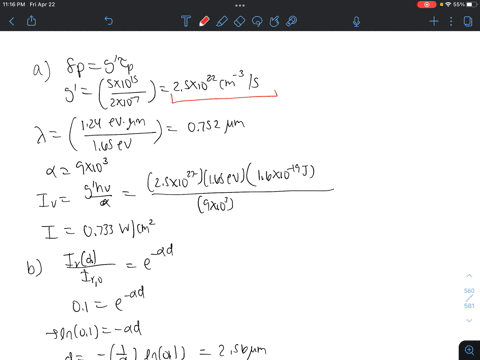 11:16 PM Fri Apr 22
55%
a) δp = g'τp
g' = (5x10^15 / 2x10^-7) = 2.5x10^22 cm^-3/s
λ = (1.24 eV·μm / 1.65 eV) = 0.752 μm
α = 9x10^3
Iv = g'hv / α = (2.5x10^22)(1.65 eV)(1.6x10^-19 J) / (9x10^3)
I = 0.733 W/cm^2
b) Iv(d) / Iv,0 = e^-αd
0.1 = e^-αd
ln(0.1) = -αd
d = -(1/α) ln(0.1) = 2.56 μm
560
/
581